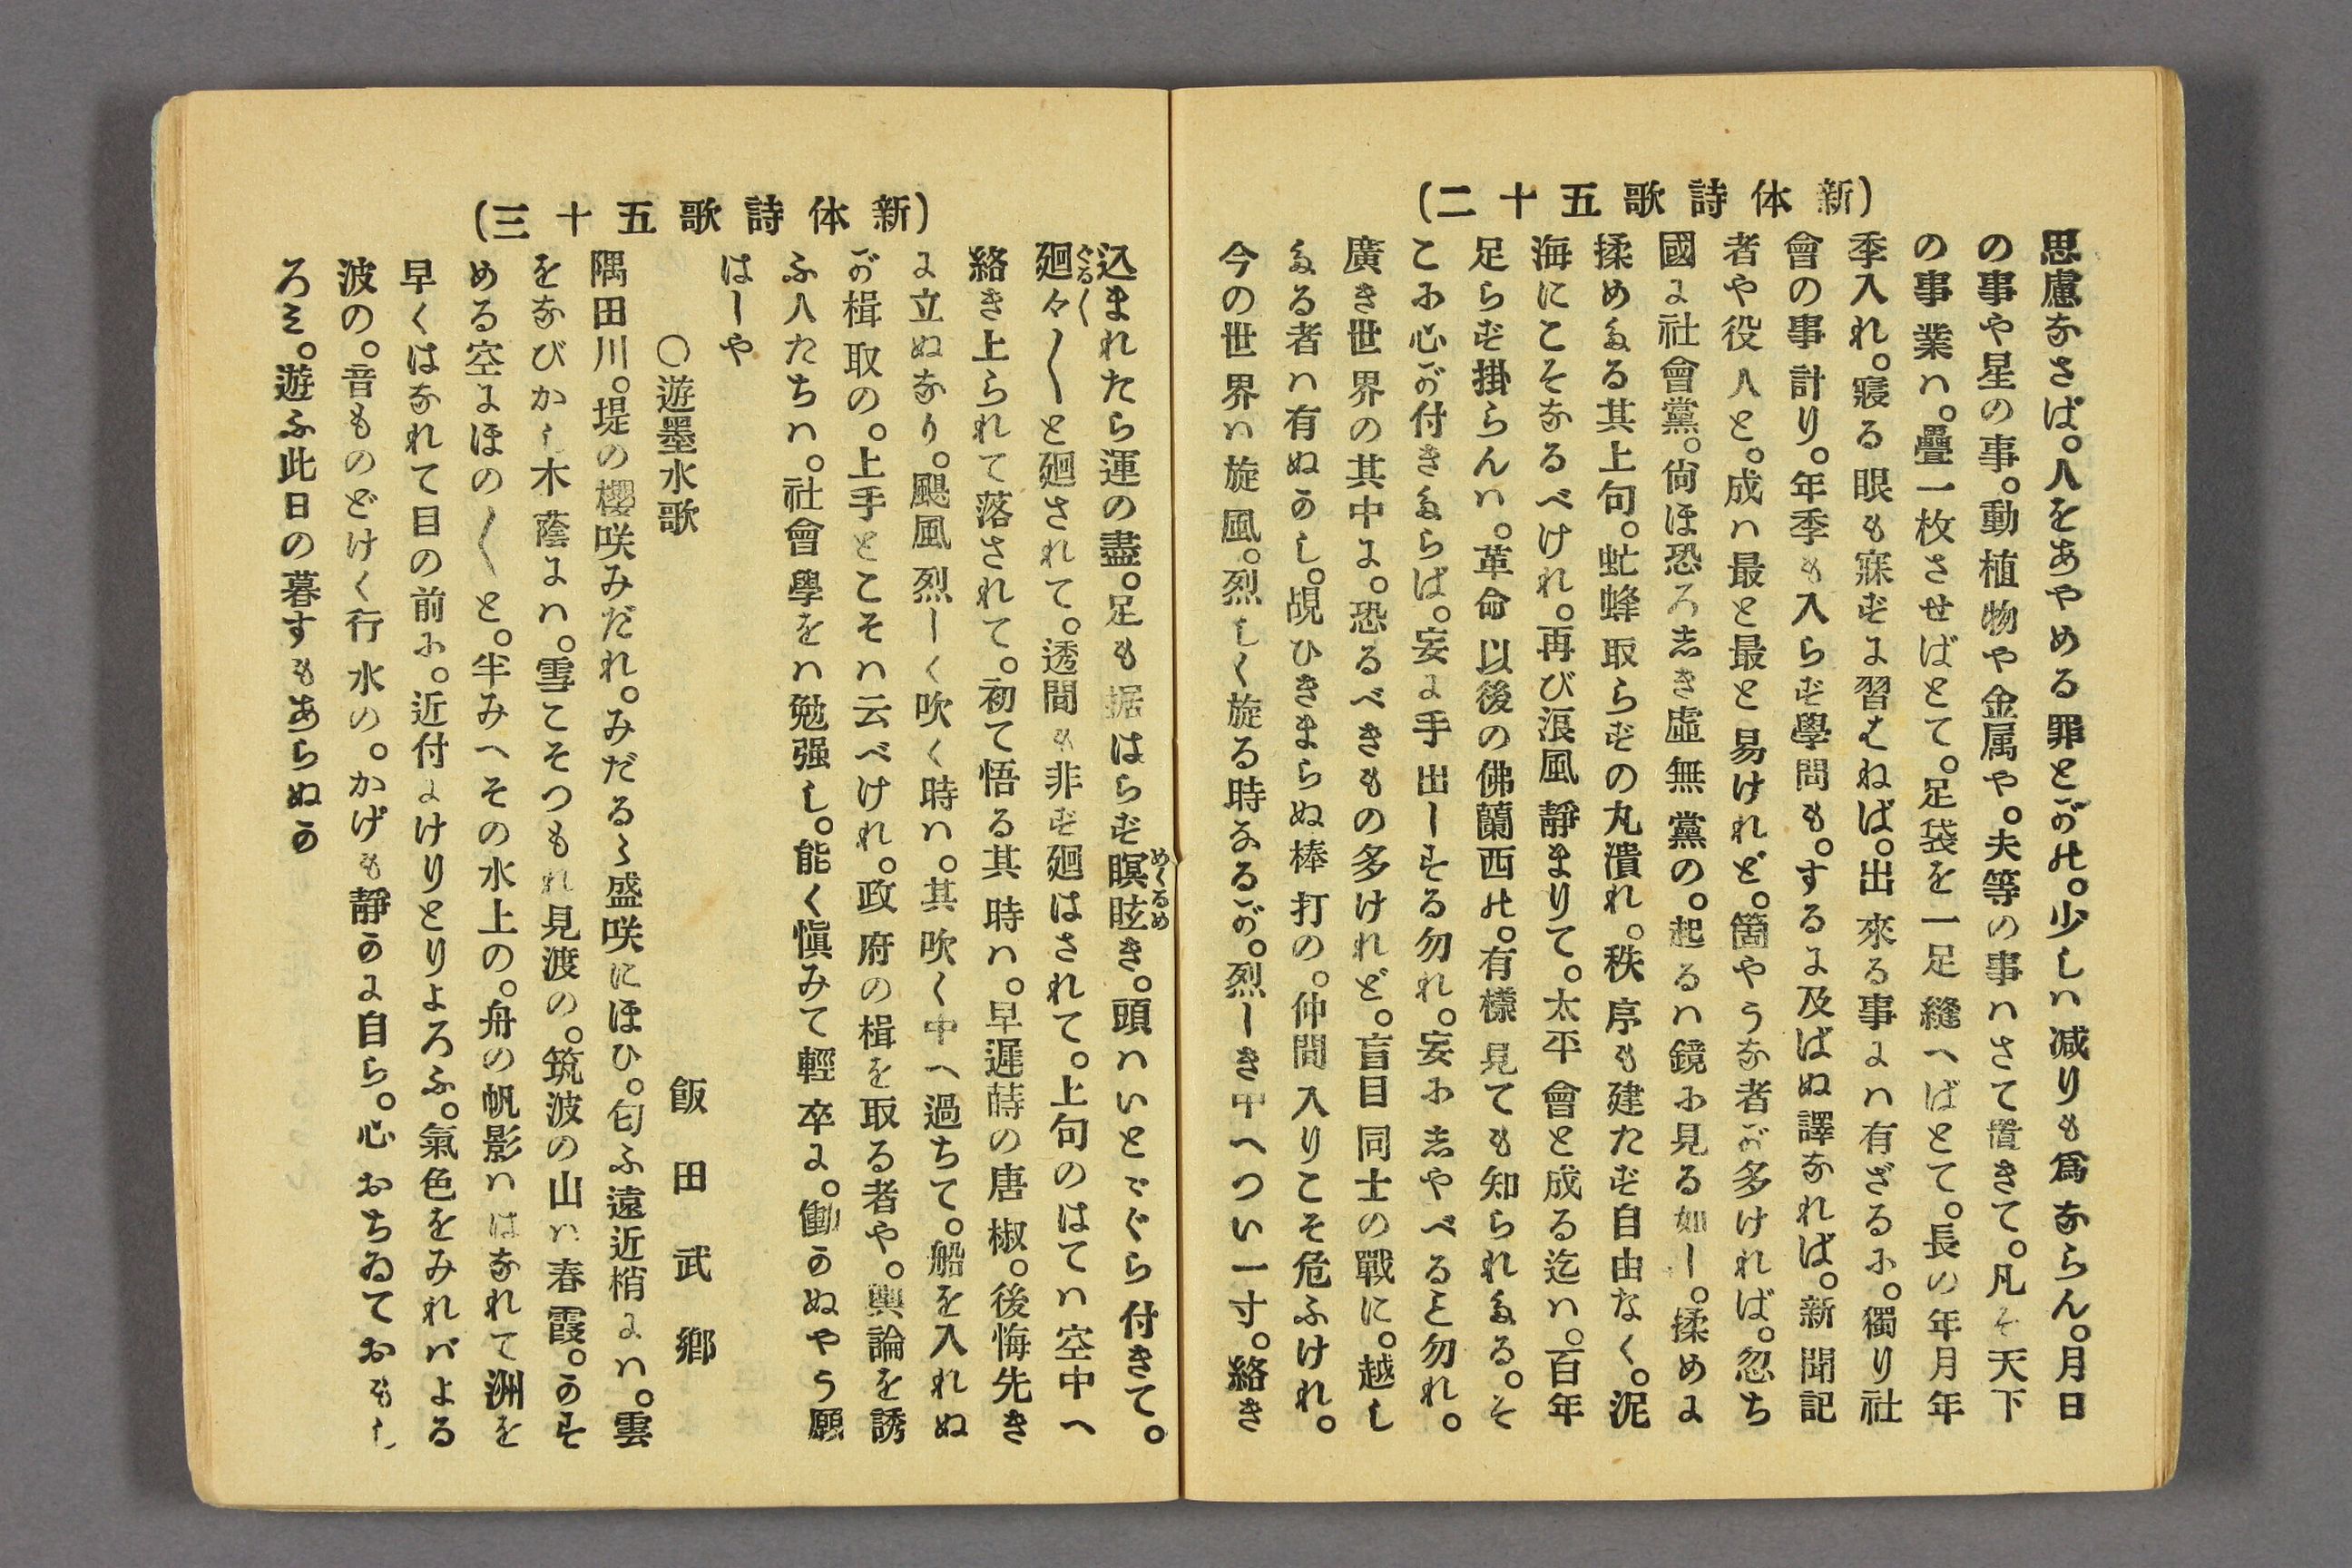 (新体詩歌五十二)
思慮なさば。人をあやめる罪とがは。少しハ减りも爲ならん。月日
の事や星の事。動植物や金属や。夫等の事ハさて置きて。凡そ天下
の事業ハ。疊一枚させばとて。足袋を一足縫へばとて。長の年月年
季入れ。寢る眼も寐ずに習はねば。出來る事にハ有ざるに。獨り社
會の事計り。年季も入らず學問も。するに及ばぬ譯なれば。新聞記
者や役人と。成ハ最と最と易けれど。箇やうな者が多ければ。忽ち
國に社會黨。尙ほ恐ろしき虛無黨の。起るハ鏡に見る如し。揉めに
揉めたる其上句。虻蜂取らずの丸潰れ。秩序も建たず自由なく。泥
海にこそなるべけれ。再び浪風靜まりて。太平會と成る迄ハ。百年
足らず掛らんハ。革命以後の佛蘭西は。有樣見ても知られたる。そ
こに心が付きたらば。妄に手出しする勿れ。妄にしやべると勿れ。
廣き世界の其中に。恐るべきもの多けれど。盲目同士の戰に。越し
たる者ハ有ぬかし。覘ひきまらぬ棒打の。仲間入りこそ危ふけれ。
今の世界ハ旋風。烈しく旋る時なるが。烈しき中へつい一寸。絡き
(新体詩歌五十三)
込まれたら運の盡。足も据はらず瞑眩き。頭ハいとゞぐら付きて。
めくるめ
廻々〳〵と廻されて。透間も非ず廻はされて。上句のはてハ空中へ
ぐる〳〵
絡き上られて落されて。初て悟る其時ハ。早遲蒔の唐椒。後悔先き
に立ぬなり。颶風烈しく吹く時ハ。其吹く中へ過ちて。船を入れぬ
が楫取の。上手とこそハ云べけれ。政府の楫を取る者や。輿論を誘
ふ人たちハ。社會學をハ勉强し。能く愼みて輕卒に。働かぬやう願
はしや
○遊墨水歌
飯田武鄕
隅田川。堤の櫻咲みだれ。みだるゝ盛咲にほひ。匂ふ遠近梢にハ。雲
をなびかし木蔭にハ。雪こそつもれ見渡の。筑波の山ハ春霞。かす
める空にほの〴〵と。半みへその水上の。舟の帆影ハはなれて洲を
早くはなれて目の前に。近付にけりとりよろふ。氣色をみれバよる
波の。音ものどけく行水の。かげも靜かに自ら。心おちゐておもし
ろミ。遊ふ此日の暮すもあらぬか